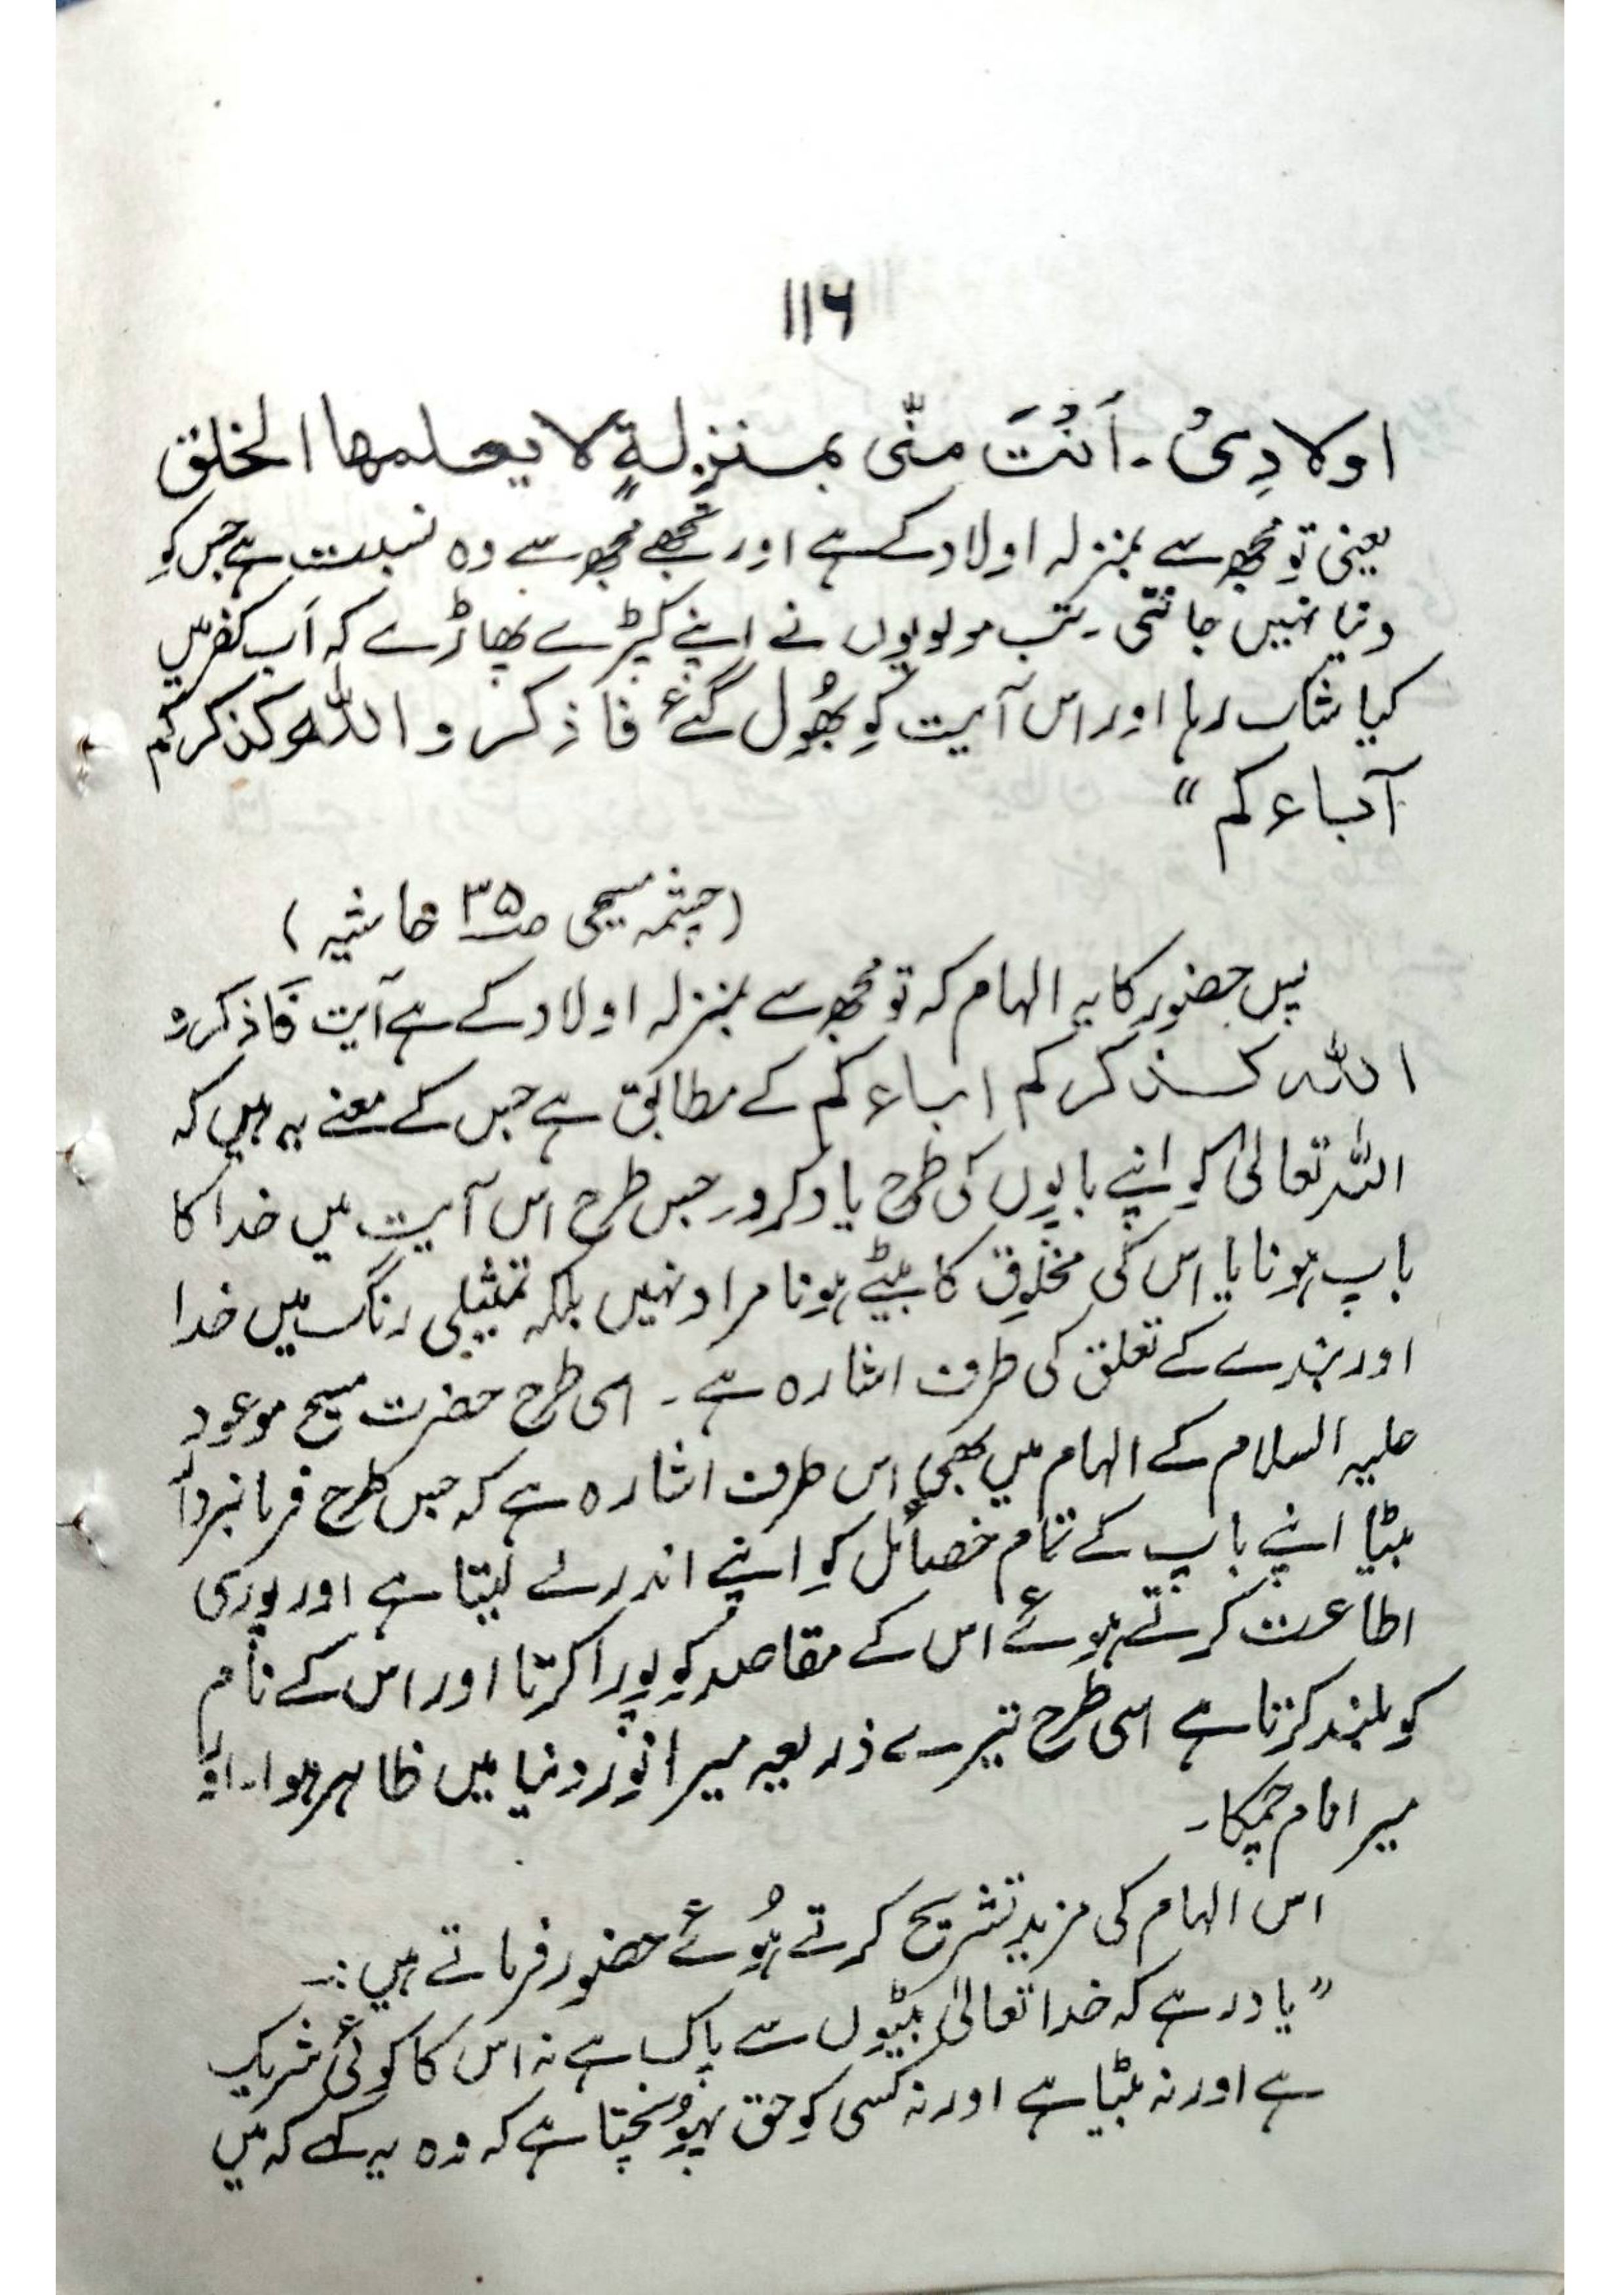 ۱۱۶
اولادِیْ ۔ اَنْتَ منّی بمنزلةٍ لا یعلمها الخلق
یعنی تو مجھ سے بمنزلہ اولاد کے ہے اور تجھے مجھ سے وہ نسبت ہے جس کو
دنیا نہیں جانتی ۔ تب مولویوں نے اپنے کپڑے پھاڑے کہ اَب کفر میں
کیا شک رہا اور اس آیت کو بھُول گئے فاذکروا اللّٰه کذکرکم
آباءکم “
(چشمہ مسیحی صـ۳۵ حاشیہ)
پس حضور کا یہ الہام کہ تو مجھ سے بمنزلہ اولاد کے ہے آیت فَاذکروا
اللّٰه کذکرکم اباءکم کے مطابق ہے جس کے معنے یہ ہیں کہ
اللّٰہ تعالیٰ کو اپنے باپوں کی طرح یاد کرو۔ جس طرح اس آیت میں خدا کا
باپ ہونا یا اس کی مخلوق کا بیٹے ہونا مراد نہیں بلکہ تمثیلی رنگ میں خدا
اور بندے کے تعلق کی طرف اشارہ ہے ۔ اسی طرح حضرت مسیح موعود
علیہ السلام کے الہام میں بھی اس طرف اشارہ ہے کہ جس طرح فرمانبردار
بیٹا اپنے باپ کے تمام خصائل کو اپنے اندر لے لیتا ہے اور پوری
اطاعت کرتے ہوئے اس کے مقاصد کو پورا کرتا اور اس کے نام
کو بلند کرتا ہے اسی طرح تیرے ذریعہ میرا نور دنیا میں ظاہر ہوا۔ اور
میرا نام چمکا۔
اس الہام کی مزید تشریح کرتے ہُوئے حضور فرماتے ہیں :۔
” یاد رہے کہ خدا تعالیٰ بیٹوں سے پاک ہے نہ اس کا کوئی شریک
ہے اور نہ بیٹا ہے اور نہ کسی کو حق پہونچتا ہے کہ وہ یہ کہے کہ میں